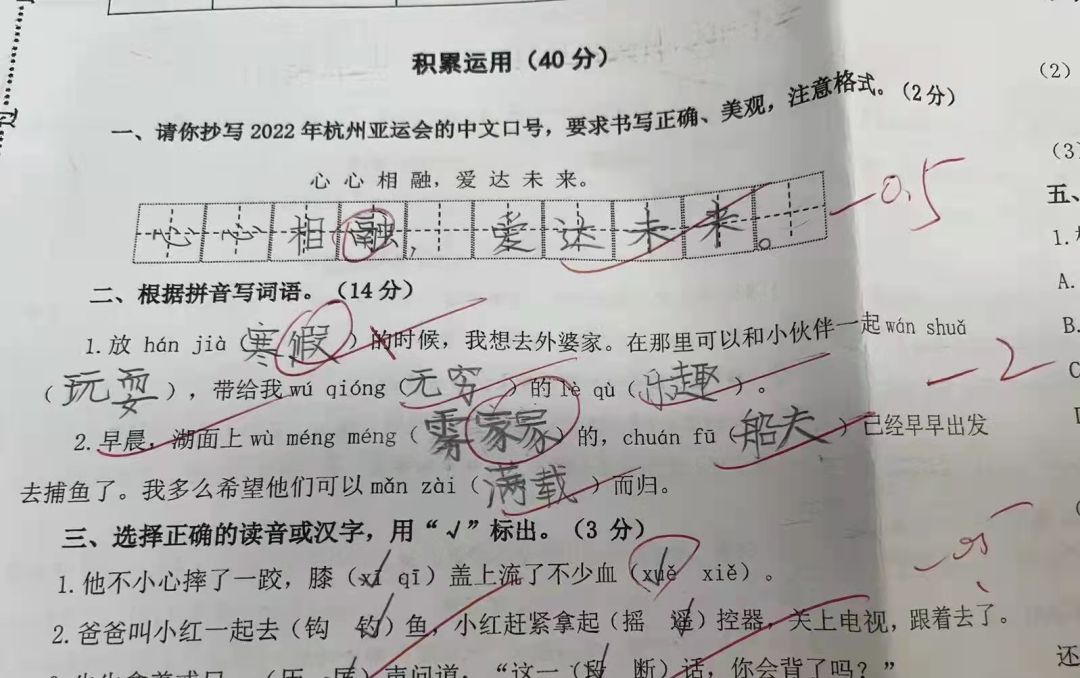 积累运用（40分）
（2）
一、请你抄写2022年杭州亚运会的中文口号，要求书写正确、美观，注意格式。（2分）
（3）
心心相融，爱达未来。
五、
心心相融，爱达未来。
-0.5
1.
二、根据拼音写词语。（14分）
A.
1.放 hán jià（寒假）的时候，我想去外婆家。在那里可以和小伙伴一起wán shuǎ
B.
（玩耍），带给我wú qióng（无穷）的lè qù（乐趣）。
-2
C
2.早晨，湖面上wù méng méng（雾）的，chuán fū（船夫）已经早早出发
去捕鱼了。我多么希望他们可以mǎn zài（满载）而归。
三、选择正确的读音或汉字，用“√”标出。（3分）
1.他不小心摔了一跤，膝（xī qī）盖上流了不少血（xuě xiě）。
2.爸爸叫小红一起去（钩 钓）鱼，小红赶紧拿起（摇 遥）控器，关上电视，跟着去了。
还
声问道，“这一（段 断）话，你会背了吗？”